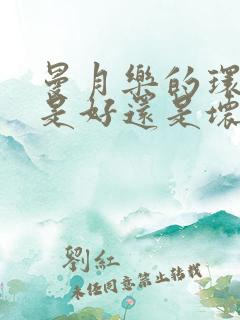 曼月樂的環
是好還是壞
劉紅
未经同意禁止转载